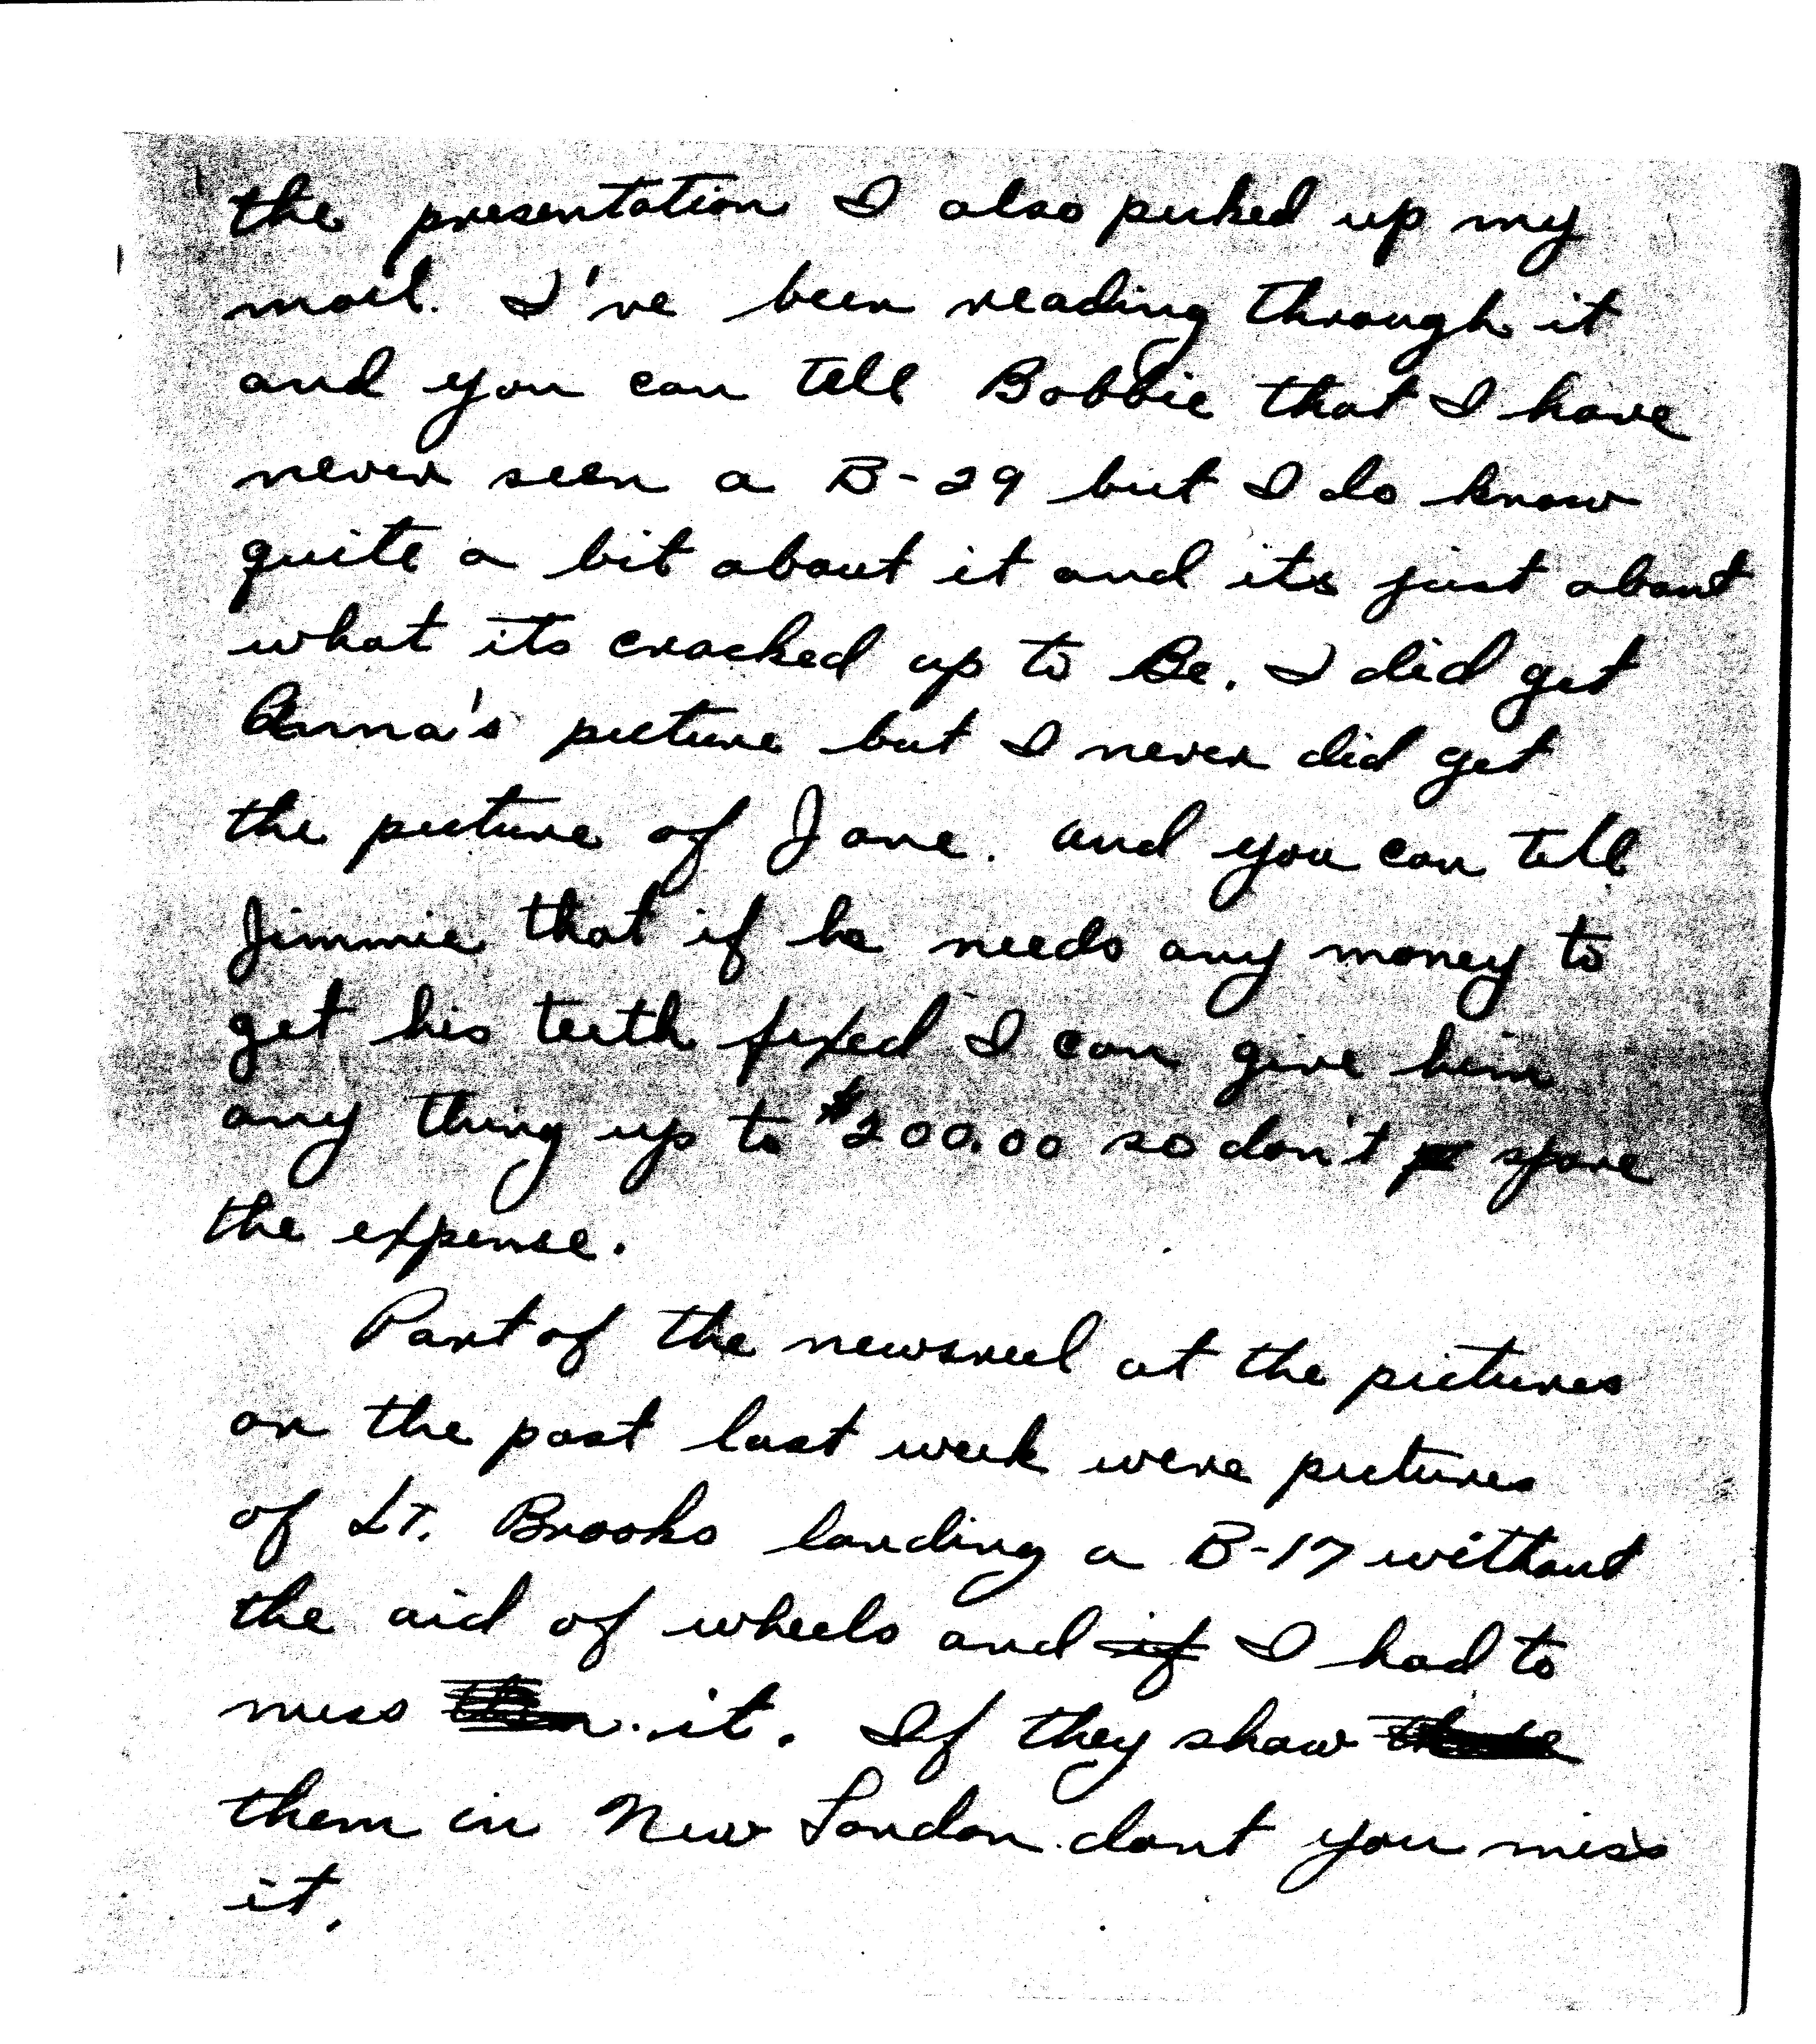 the presentation I also picked up my
mail. I've been reading through it
and you can tell Bobbie that I have
never seen a B-29 but I do know
quite a bit about it and its just about
what its cracked up to Be. I did get
Anna's picture but I never did get
the picture of Jane. and you can tell
Jimmie that if he needs any money to
get his teeth fixed I can give him
any thing up to $200.00 so don't spare
the expense.
Part of the newsreel at the pictures
on the post last week were pictures
of Lt. Brooks landing a B-17 without
the aid of wheels and if I had to
miss it. If they show
them in New London dont you miss
it.